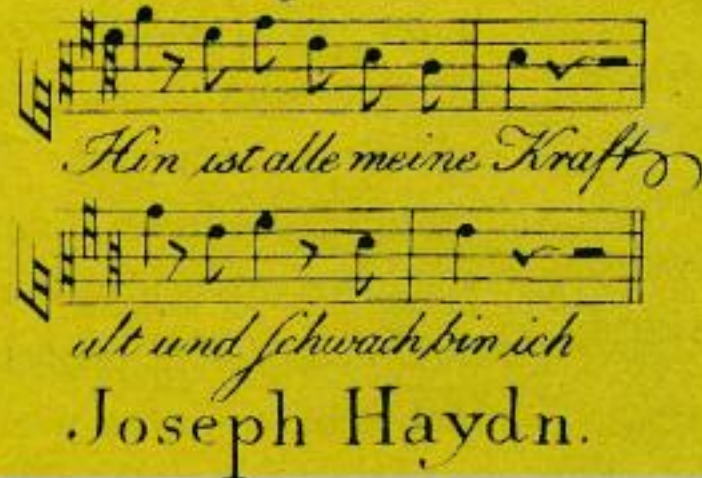 Hin ist alle meine Kraft
alt und schwach bin ich
Joseph Haydn.